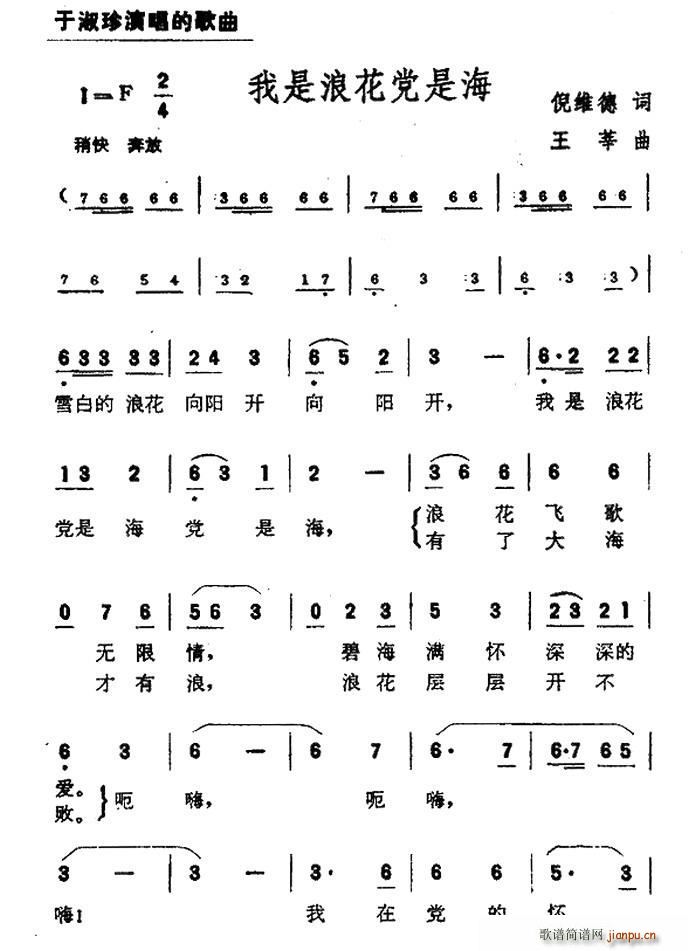 于淑珍演唱的歌曲
我是浪花党是海
1=F 2/4
倪维德 词
稍快 奔放
王莘 曲
( 7 6 6 6 6 | 3 6 6 6 6 | 7 6 6 6 6 | 3 6 6 6 6 |
7 6 5 4 | 3 2 1 7 | 6 3 3 | 6 3 3 ) |
6 3 3 3 3 | 2 4 3 | 6 5 2 | 3 — | 6·2 2 2 |
雪白的 浪花 向阳 开 向 阳 开， 我 是 浪花
1 3 2 | 6 3 1 | 2 — | 3 6 6 | 6 6 |
党是 海 党 是 海， 浪 花 飞 歌
有 了 大 海
0 7 6 | 5 6 3 | 0 2 3 | 5 3 | 2 3 2 1 |
无 限 情， 碧 海 满 怀 深 深 的
才 有 浪， 浪 花 层 层 开 不
6 3 | 6 — | 6 7 | 6· 7 | 6·7 6 5 |
爱。 呃 嗨， 呃 嗨，
败。
3 — | 3 — | 3· 6 | 6 6 | 5· 3 |
嗨! 我 在 党 的 怀
歌谱简谱网
jianpu.cn